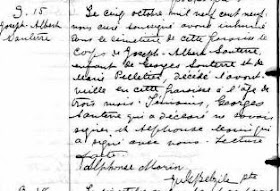 S. 15
Joseph-Albert
Santerre
Le cinq octobre mil neuf cent neuf
nous curé soussigné avons inhumé
dans le cimetière de cette paroisse le
corps de Joseph-Albert Santerre,
enfant de Georges Santerre et de
Marie Pelletier, décédé l'avant-
veille en cette paroisse à l'âge de
trois mois. Témoins, Georges
Santerre qui a déclaré ne savoir
signer et Alphonse Morin qui
a signé avec nous. Lecture
faite.
Alphonse Morin
ptre
S. 16